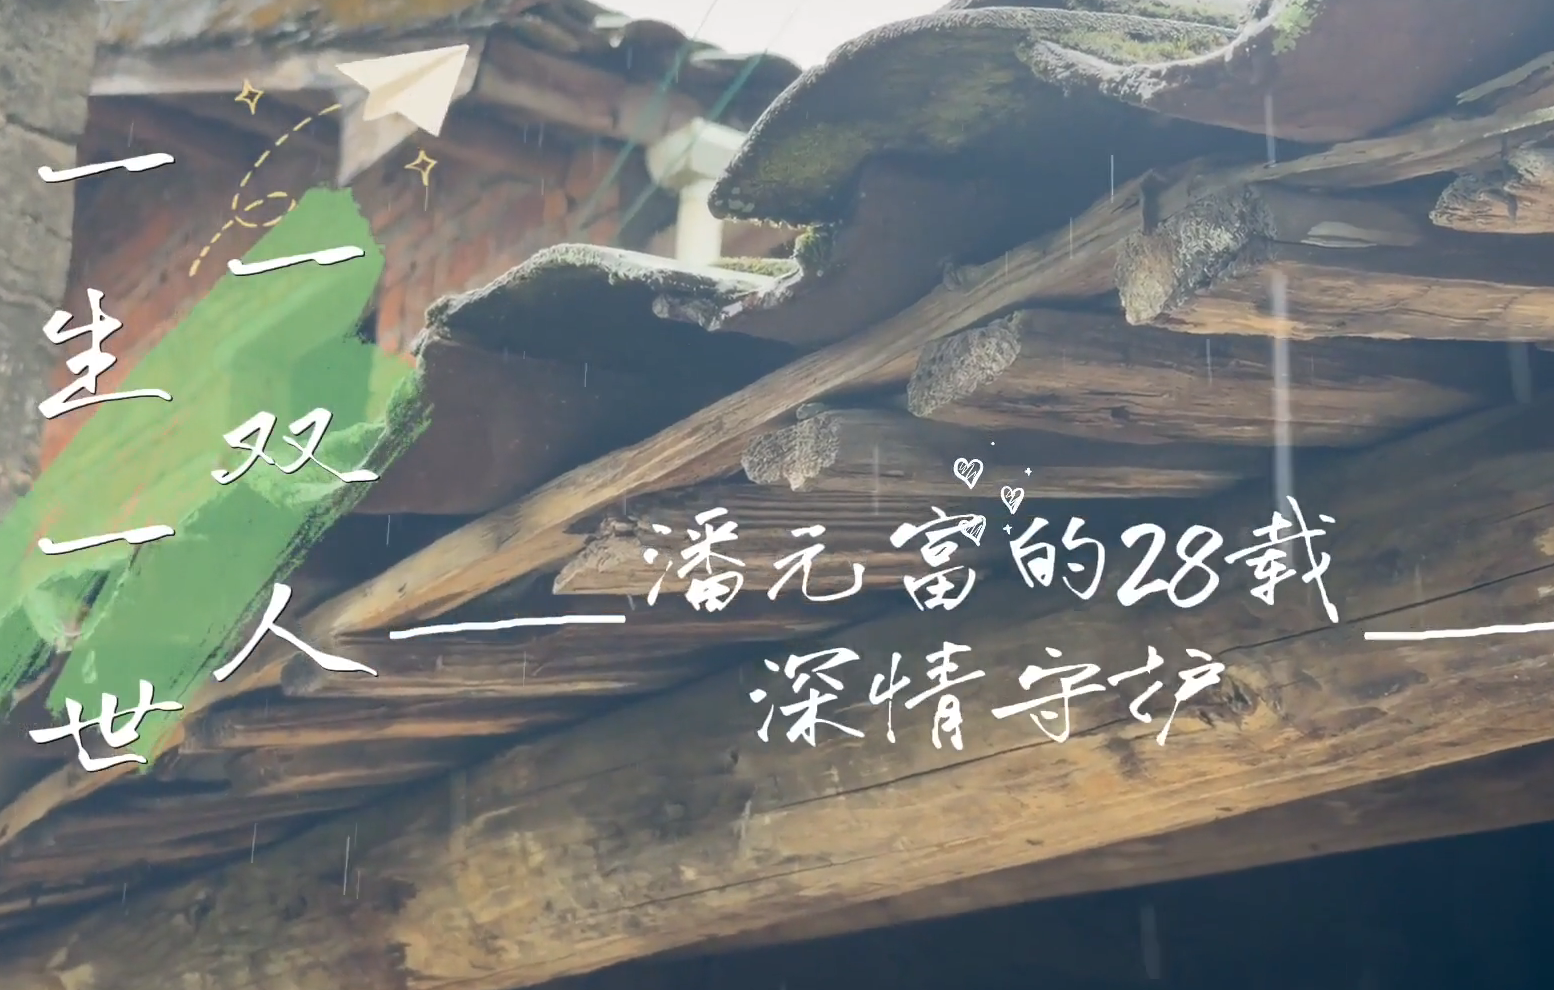 一生一世
一双人
潘元富的28载
深情守护